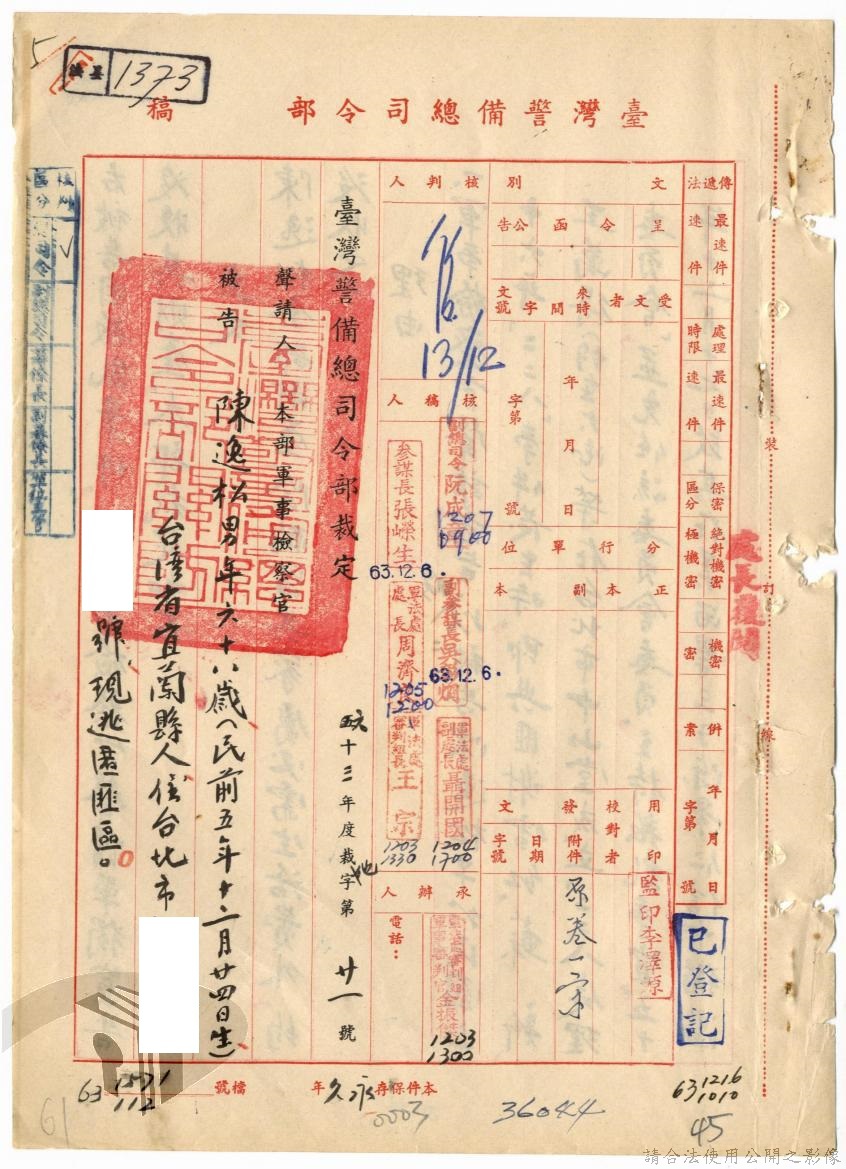 5
1373
臺灣警備總司令部 稿
傳遞法 最速件 速件
處理時限 最速件 速件
保密區分 絕對機密 極機密 機密 密
併案 年 月 日 字第 號
裝 訂 線
處長複閱
已登記
文別 呈 令 函 公告
受文者 來文時間 字號
年 月 日
字第 號
分行單位
正本 副本
用印 監印李澤源
校對者
發文 附件 日期 字號
原卷一宗
核判人
13/12
核稿人
副總司令阮成章
1207
0900
參謀長張嶸生
63.12.6.
63.12.6.
軍法處處長周濟
1205
1200
軍法處副處長聶開國
1204
1700
軍法處審判組長王宗
1203
1330
承辦人
電話：
1203
1300
臺灣警備總司令部裁定
六十三年度裁字第廿一號
聲請人 本部軍事檢察官
被告 陳逸松男年六十八歲(民前五年十二月廿四日生)
台灣省宜蘭縣人住台北市
號，現逃匿匪區。
核判區分
本件保存永久年
檔號
63 1571
112
0003
36044
63 1216
1010
45
61
請合法使用公開之影像